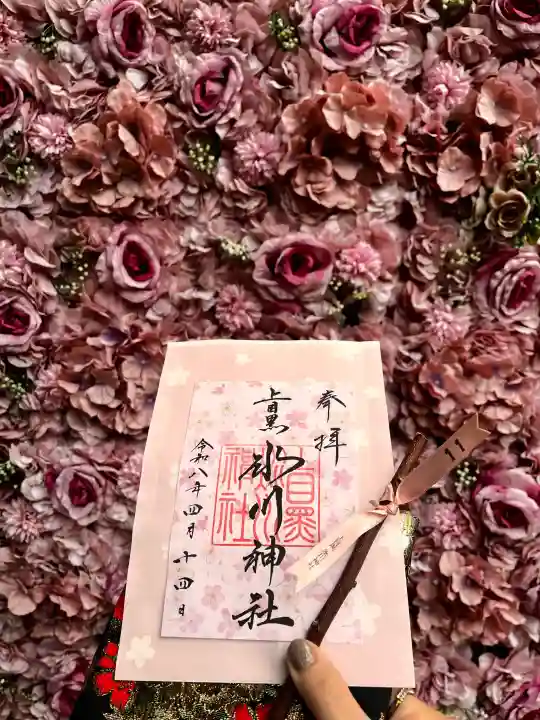 奉拝
上目黒
氷川神社
令和八年四月十四日
上目黒氷川神社
11